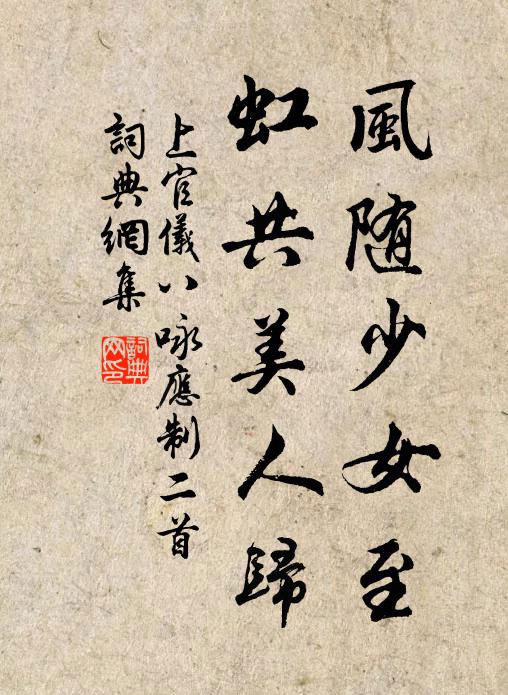 風随少女至
虹共美人歸
上官儀八咏應制二首
詞典網集
詞典网印